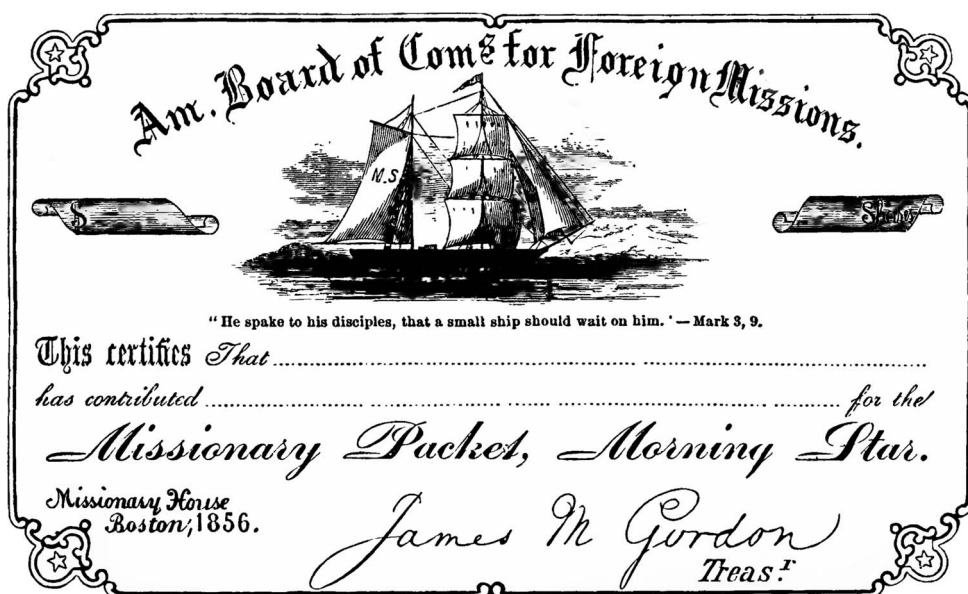 Am. Board of Coms for Foreign Missions.
M.S
$
Shares
"He spake to his disciples, that a small ship should wait on him.' — Mark 3, 9.
This certifies That
has contributed for the
Missionary Packet, Morning Star.
Missionary House
Boston, 1856.
James M Gordon
Treas.r